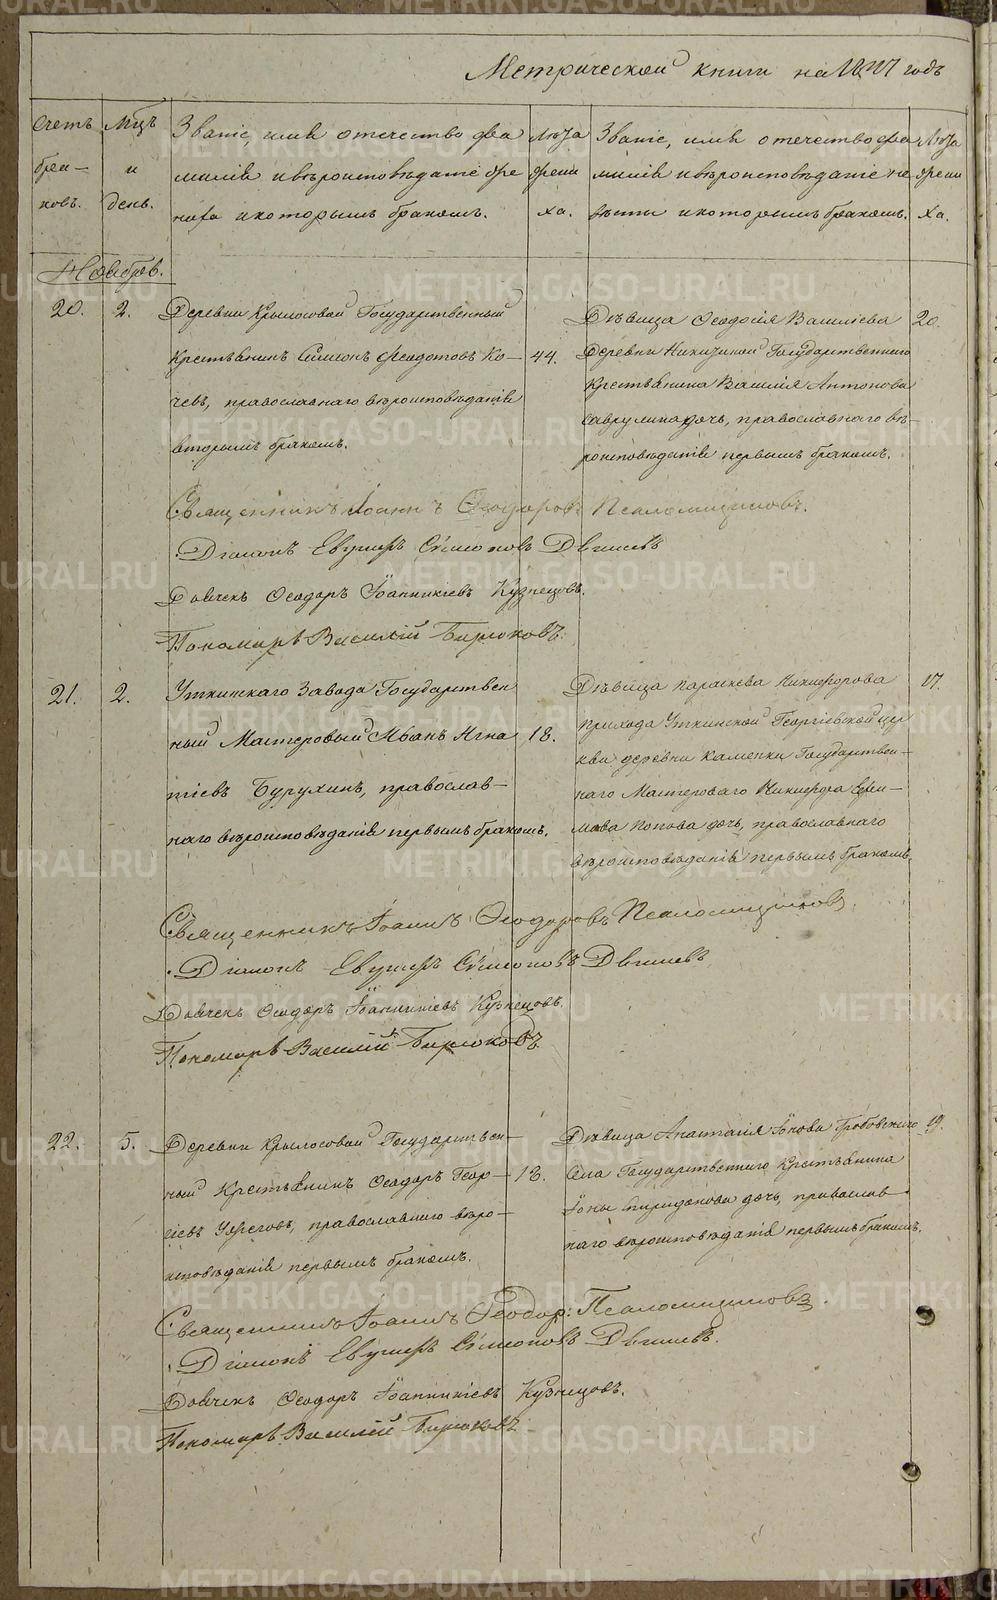 Метрической книги на годъ
Счетъ бра- ковъ.
Мцъ и день.
Званіе, имя отечество фа
миліи и вѣроисповѣданіе же
ниха и которымъ бракомъ.
Лѣта жени ха.
Званіе, имя отечество фа
миліи и вѣроисповѣданіе не
вѣсты и которымъ бракомъ.
Ноября.
20. 2.
Деревни Крылосовой Государственный
Крестьянинъ Симеонъ Ѳеодотовъ Ко-
чевъ, православнаго вѣроисповѣданія
вторымъ бракомъ.
44.
Дѣвица Ѳеодосія Василіева
Деревни Государственнаго
Крестьянина Василія Антонова
дочь, православнаго вѣ-
роисповѣданія первымъ бракомъ.
20.
Священникъ Іоаннъ Ѳеодоровъ Псаломщиковъ.
Діаконъ Симеоновъ
Дьячекъ Ѳеодоръ Іоанникіевъ Кузнецовъ.
Пономарь Василій Бирюковъ.
21. 2.
Уткинскаго Завода Государствен
ный Мастеровый Иванъ Игна
тіевъ Бурухинъ, православ-
наго вѣроисповѣданія первымъ бракомъ.
18.
Дѣвица Параскева Никифорова
прихода Уткинской Георгіевской цер
кви деревни Каменки Государствен-
наго Мастероваго Никифора
Попова дочь, православнаго
вѣроисповѣданія первымъ бракомъ.
17.
Священникъ Іоаннъ Ѳеодоровъ Псаломщиковъ.
Діаконъ Симеоновъ
Дьячекъ Ѳеодоръ Іоанникіевъ Кузнецовъ.
Пономарь Василій Бирюковъ.
22. 5.
Деревни Крылосовой Государствен-
ный Крестьянинъ Ѳеодоръ Геор-
гіевъ православнаго вѣро-
исповѣданія первымъ бракомъ.
18.
Дѣвица Анастасія Іонова Гробовскаго
села Государственнаго Крестьянина
Іоны дочь, православ-
наго вѣроисповѣданія первымъ бракомъ.
19.
Священникъ Іоаннъ Ѳеодор: Псаломщиковъ.
Діаконъ Симеоновъ
Дьячекъ Ѳеодоръ Іоанникіевъ Кузнецовъ.
Пономарь Василій Бирюковъ
METRIKI.GASO-URAL.RU